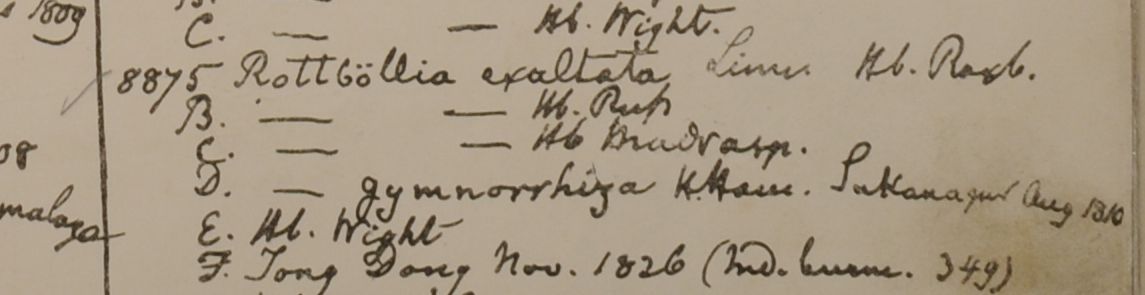 s 1809
C. — — Hb. Wight.
8875 Rottböllia exaltata Linn. Hb. Roxb.
B. — — Hb. Russ
08 C. — — Hb Madrasp.
D. — gymnorrhiza H.Ham. Sukanagur Aug 1810
malaya
E. Hb. Wight
F. Tong Dong Nov. 1826 (Ind. burm. 349)